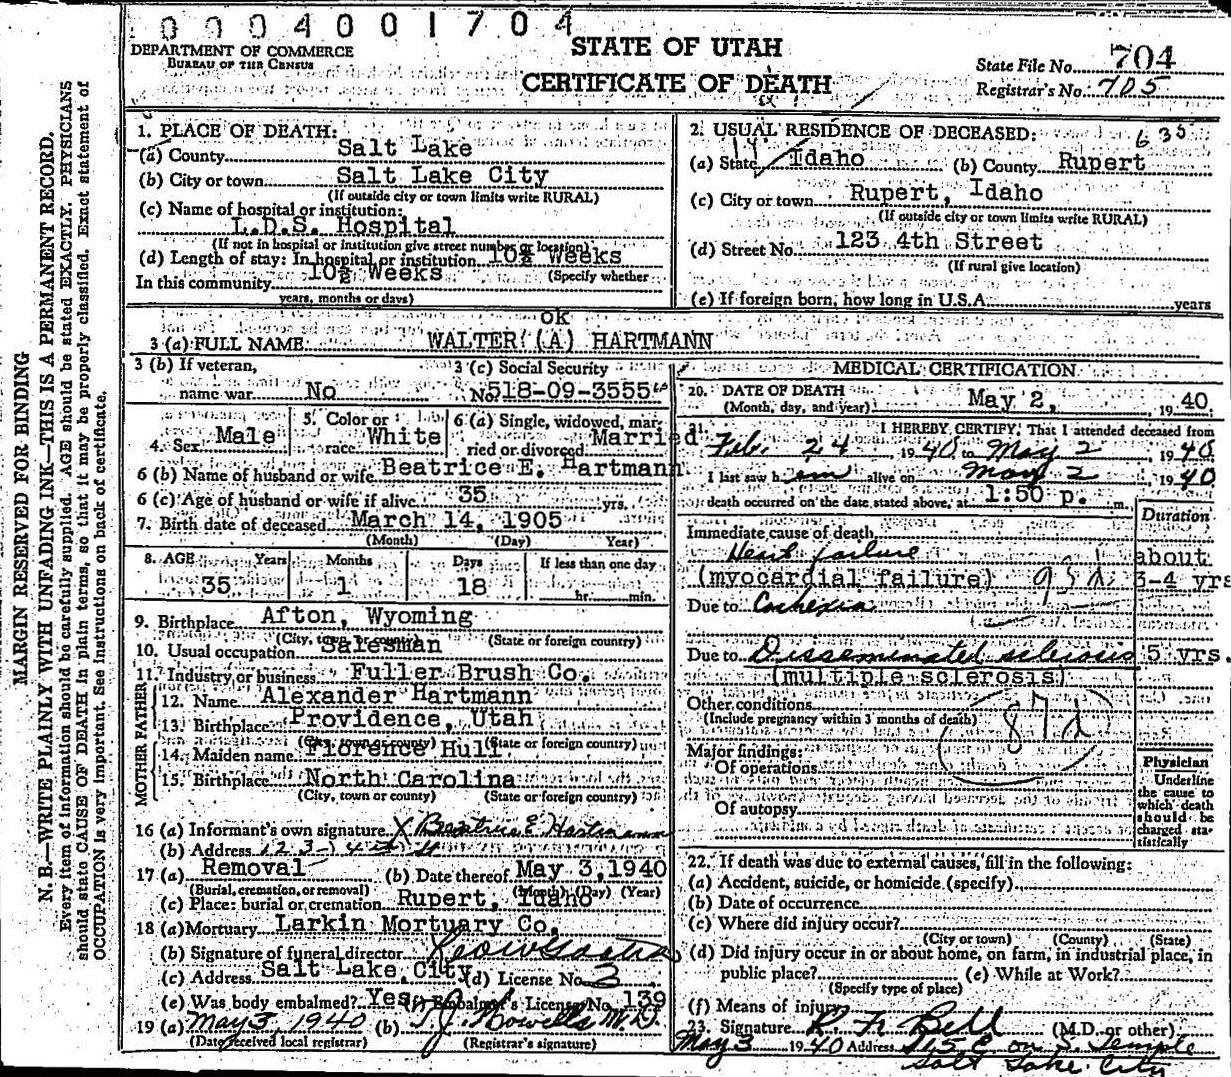 0004001704
DEPARTMENT OF COMMERCE
BUREAU OF THE CENSUS
STATE OF UTAH
CERTIFICATE OF DEATH
State File No. 704
Registrar's No. 705
MARGIN RESERVED FOR BINDING
N. B.—WRITE PLAINLY WITH UNFADING INK—THIS IS A PERMANENT RECORD.
Every item of information should be carefully supplied. AGE should be stated EXACTLY. PHYSICIANS
should state CAUSE OF DEATH in plain terms, so that it may be properly classified. Exact statement of
OCCUPATION is very important. See instructions on back of certificate.
1. PLACE OF DEATH:
(a) County Salt Lake
(b) City or town Salt Lake City
(If outside city or town limits write RURAL)
(c) Name of hospital or institution:
L.D.S. Hospital
(If not in hospital or institution give street number or location)
(d) Length of stay: In hospital or institution 10½ Weeks
(Specify whether
In this community 10½ Weeks
years, months or days)
2. USUAL RESIDENCE OF DECEASED: 635
(a) State Idaho (b) County Rupert
(c) City or town Rupert, Idaho
(If outside city or town limits write RURAL)
(d) Street No. 123 4th Street
(If rural give location)
(e) If foreign born, how long in U.S.A. years
ok
3 (a) FULL NAME WALTER (A) HARTMANN
3 (b) If veteran,
name war No
3 (c) Social Security
No. 518-09-3555
4. Sex Male
5. Color or
race White
6 (a) Single, widowed, mar-
ried or divorced Married
6 (b) Name of husband or wife Beatrice E. Hartmann
6 (c) Age of husband or wife if alive 35 yrs.
7. Birth date of deceased March 14, 1905
(Month) (Day) (Year)
8. AGE Years Months Days If less than one day
35 1 18 hr. min.
9. Birthplace Afton, Wyoming
(City, town, or county) (State or foreign country)
10. Usual occupation Salesman
11. Industry or business Fuller Brush Co.
FATHER
12. Name Alexander Hartmann
13. Birthplace Providence, Utah
(City, town or county) (State or foreign country)
MOTHER
14. Maiden name Florence Hull
15. Birthplace North Carolina
(City, town or county) (State or foreign country)
16 (a) Informant's own signature X Beatrice E. Hartmann
(b) Address 123-4th St
17 (a) Removal (b) Date thereof May 3, 1940
(Burial, cremation, or removal) (Month) (Day) (Year)
(c) Place: burial or cremation Rupert, Idaho
18 (a) Mortuary Larkin Mortuary Co.
(b) Signature of funeral director
(c) Address Salt Lake City (d) License No. 3
(e) Was body embalmed? Yes Embalmer's License No. 139
19 (a) May 3, 1940 (b) T J Howells M.D.
(Date received local registrar) (Registrar's signature)
MEDICAL CERTIFICATION
20. DATE OF DEATH
(Month, day, and year) May 2, 1940
21. I HEREBY CERTIFY, That I attended deceased from
Feb. 24 1940 to May 2 1940
I last saw him alive on May 2, 1940
death occurred on the date stated above, at 1:50 p. m.
Duration
Immediate cause of death
Heart failure about
(myocardial failure) 93d 3-4 yrs
Due to Cachexia
Due to Disseminated sclerosis 5 yrs.
(multiple sclerosis)
Other conditions
(Include pregnancy within 3 months of death)
87d
Major findings:
Of operations
Of autopsy
Physician
Underline
the cause to
which death
should be
charged sta-
tistically
22. If death was due to external causes, fill in the following:
(a) Accident, suicide, or homicide (specify)
(b) Date of occurrence
(c) Where did injury occur?
(City or town) (County) (State)
(d) Did injury occur in or about home, on farm, in industrial place, in
public place? (e) While at Work?
(Specify type of place)
(f) Means of injury
23. Signature R. Fr Bell (M.D. or other)
May 3 1940 Address 115 E on S. Temple
Salt Lake City